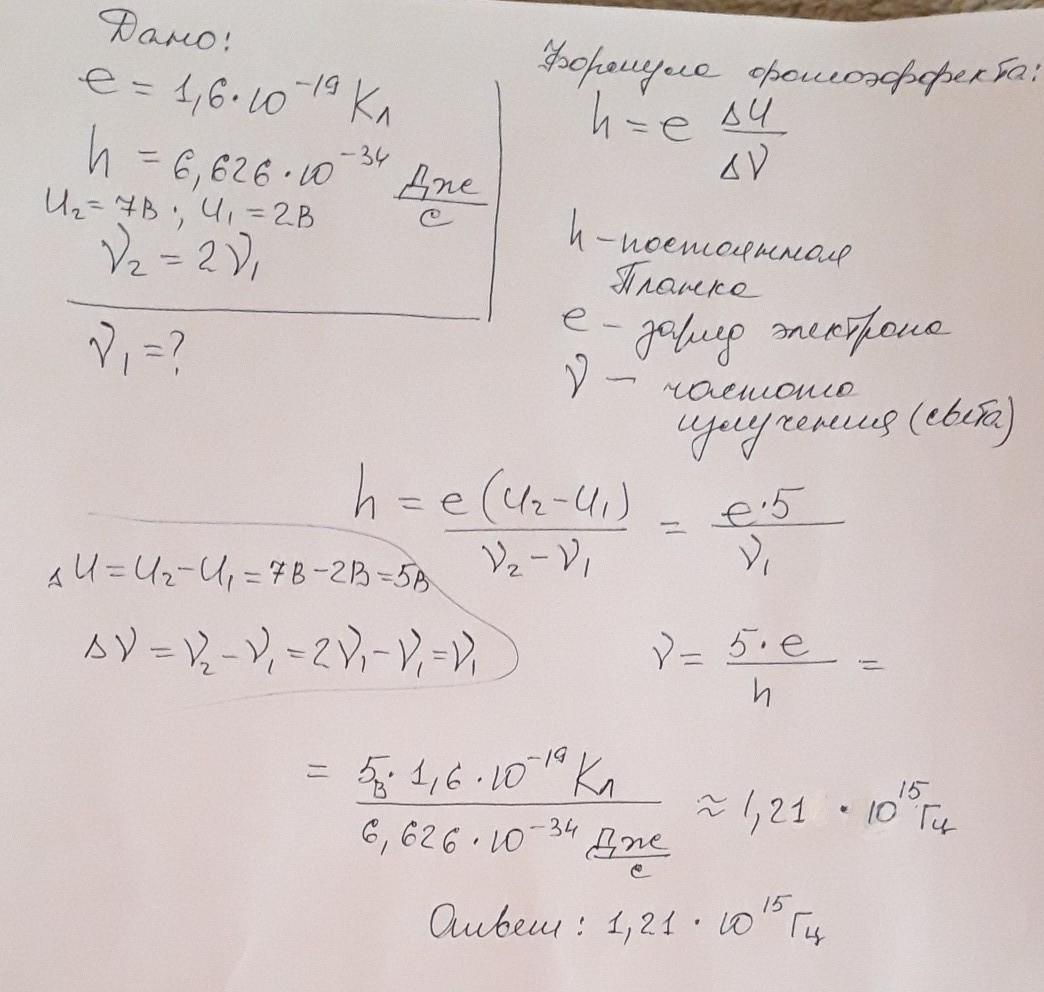 Дано:
e = 1,6·10⁻¹⁹ Кл
h = 6,626·10⁻³⁴ Дж/с
U₂ = 7В; U₁ = 2В
ν₂ = 2ν₁
ν₁ = ?
Формула фотоэффекта:
h = e ΔU/Δν
h – постоянная
Планка
e – заряд электрона
ν – частота
излучения (света)
h = e(U₂ – U₁)/(ν₂ – ν₁) = e·5/ν₁
ΔU = U₂ – U₁ = 7В – 2В = 5В
Δν = ν₂ – ν₁ = 2ν₁ – ν₁ = ν₁
ν = 5·e/h =
= 5В·1,6·10⁻¹⁹ Кл/6,626·10⁻³⁴ Дж/с ≈ 1,21·10¹⁵ Гц
Ответ: 1,21·10¹⁵ Гц